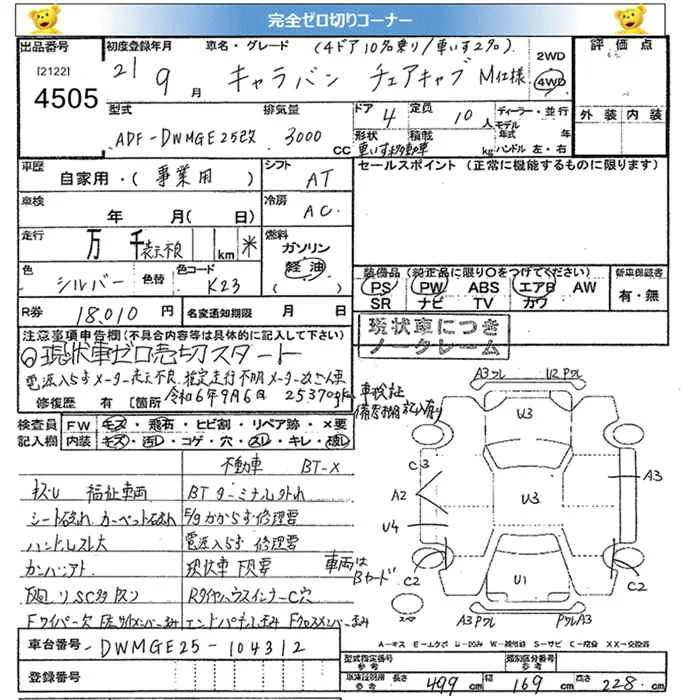 完全ゼロ切りコーナー
出品番号 初度登録年月 車名・グレード (4ドア10名乗り/車いす2名) 2WD 評価点
[2122] 21 9月 キャラバン チェアキャブ M仕様 4WD
4505
型式 排気量 ドア 4 定員 10人 ディーラー・並行 外装 内装
モデル 年式
ADF-DWMGE25改 3000CC 形状 車いす移動車 積載 kg ハンドル 左・右
車歴 シフト セールスポイント (正常に機能するものに限ります)
自家用・(事業用) AT
車検 年 月(日) 冷房 AC
走行 万 千 表示不良 km 米 燃料 ガソリン 軽油
色 シルバー 色替 色コード K23
装備品 (純正品に限り○をつけてください) 新車保証書
PS PW ABS エアB AW 有・無
SR ナビ TV カワ
R券 18,010円 名変通知期限 月 日
現状車につき
ノークレーム
注意事項申告欄(不具合内容等は具体的に記入して下さい)
現状車ゼロ売切スタート
電源入らずメーター表示不良 推定走行不明メーター改ざん車
令和6年9月6日 25370
修復歴 有 [箇所
車検証
備考欄記入有り
検査員 FW キズ・飛石・ヒビ割・リペア跡・×要
記入欄 内装 キズ・汚レ・コゲ・穴・スレ・キレ・破レ
不動車 BT-X
キズレ 福祉車両 BTターミナル外れ
E/gかからず修理要
ハンドルスレ大 電源入らず修理要
現状車 下見要
車両は
Bヤード
RタイヤハウスインナーC穴
A3ワレ U2Pワレ
U3
C3
A2
U3
A3
U4
C2
U1
C2
A3Pワレ PワレA3
A-キズ E-エクボ U-凹み W-補修跡 S-サビ C-腐食 XX-交換済
車台番号 DWMGE25-104312
登録番号
型式指定番号 参考 類別区分番号 参考
車庫証明用 参考 長さ 499cm 幅 169cm 高さ 228cm